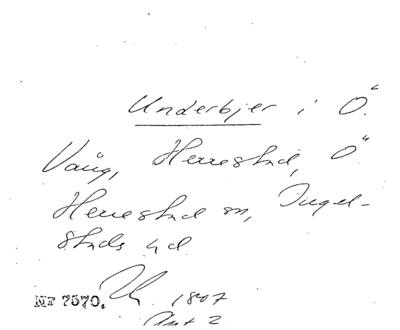 Underbjer i Ö.
Vång, Herrestad, Ö
Herrestad sn, Ingel-
stads hd
NF 7570. 1807
Akt 2